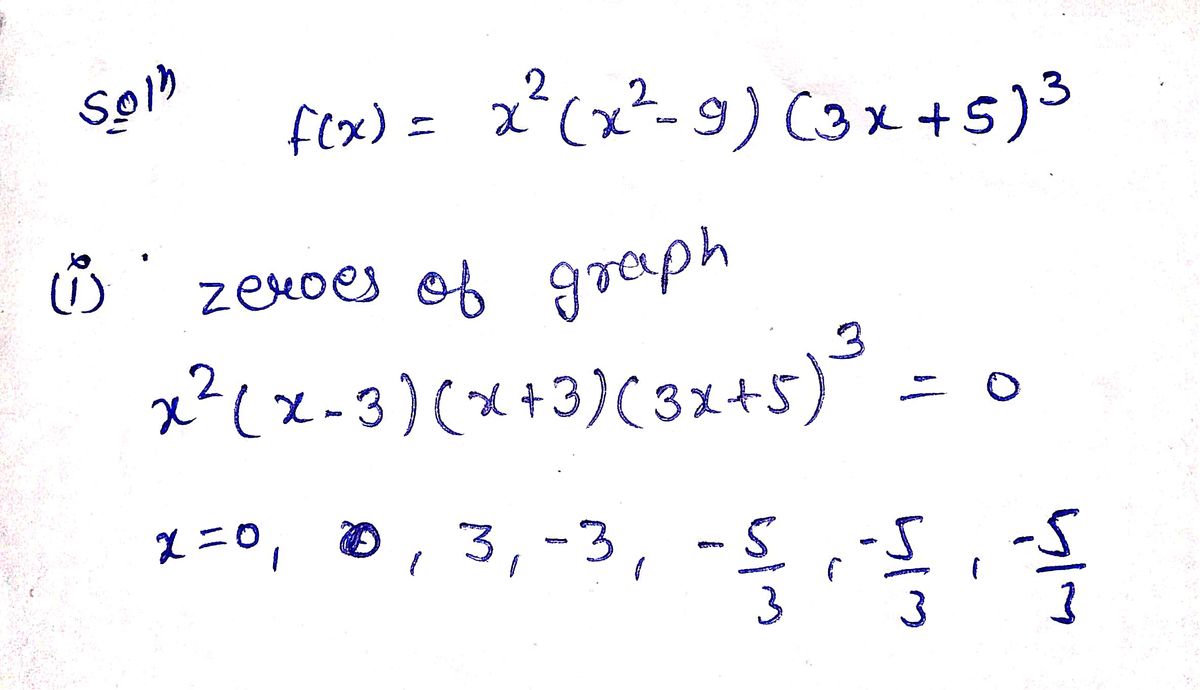 Soln f(x) = x²(x²-9) (3x+5)³
(i) zeroes of graph
x²(x-3)(x+3)(3x+5)³ = 0
x=0, 0, 3, -3, -5/3, -5/3, -5/3